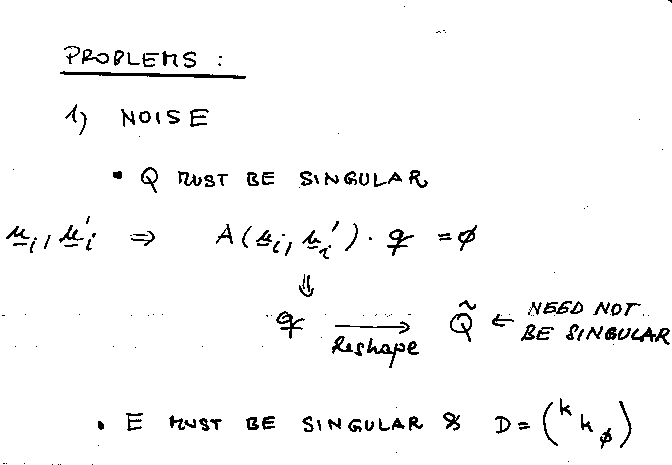 PROBLEMS :
1) NOISE
• Q MUST BE SINGULAR
u̲ᵢ, u̲ᵢ' ⇒ A(u̲ᵢ, u̲ᵢ') · q = ϕ
⇓
q → Q̃ ← NEED NOT
Reshape BE SINGULAR
• E MUST BE SINGULAR & D = (k k ϕ)